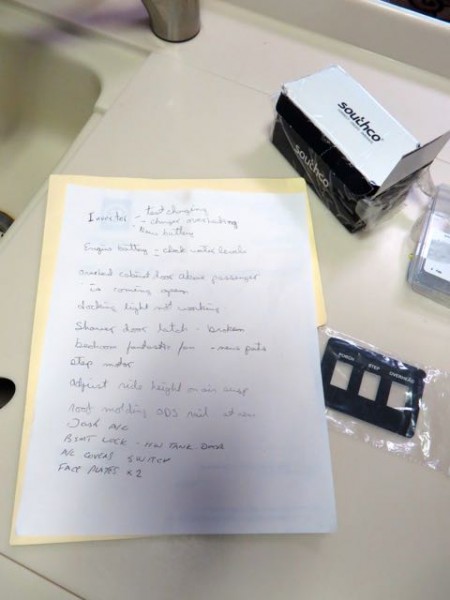 southco
southco
Inverter - test charging
- charger overheating
New battery
Engine battery - check water levels
overhead cabinet door above passenger
is coming open
docking light not working
Shower door latch - broken
bedroom fantastic fan - new parts
step motor
adjust ride height on air susp
roof molding ODS rail
Dash A/C
Bent Lock - H/W Tank Door
A/C covers switch
Face plates x 2
PORCH STEP OVERHEAD